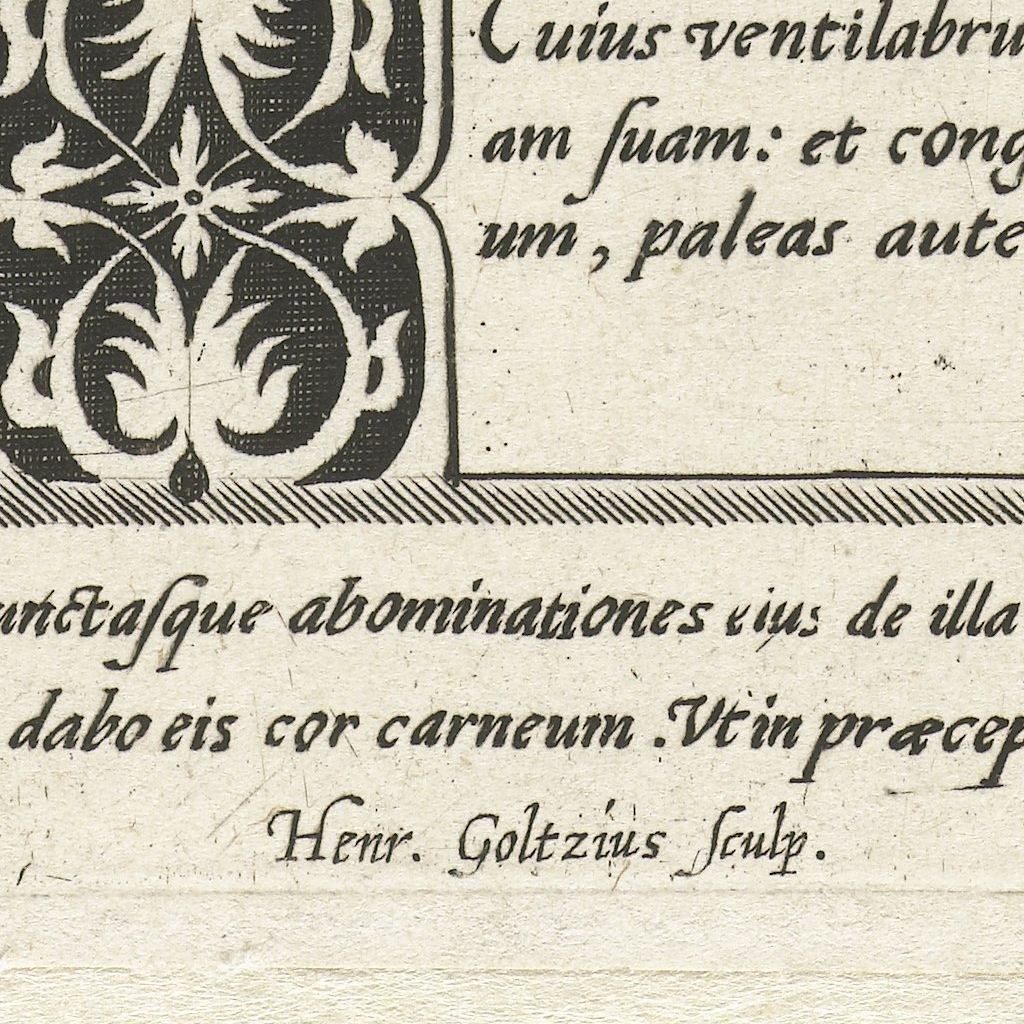 Cuius ventilabru
am ſuam: et cong
um, paleas aute
unctaſque abominationes eius de illa
dabo eis cor carneum. Vt in præcep
Henr. Goltzius ſculp.